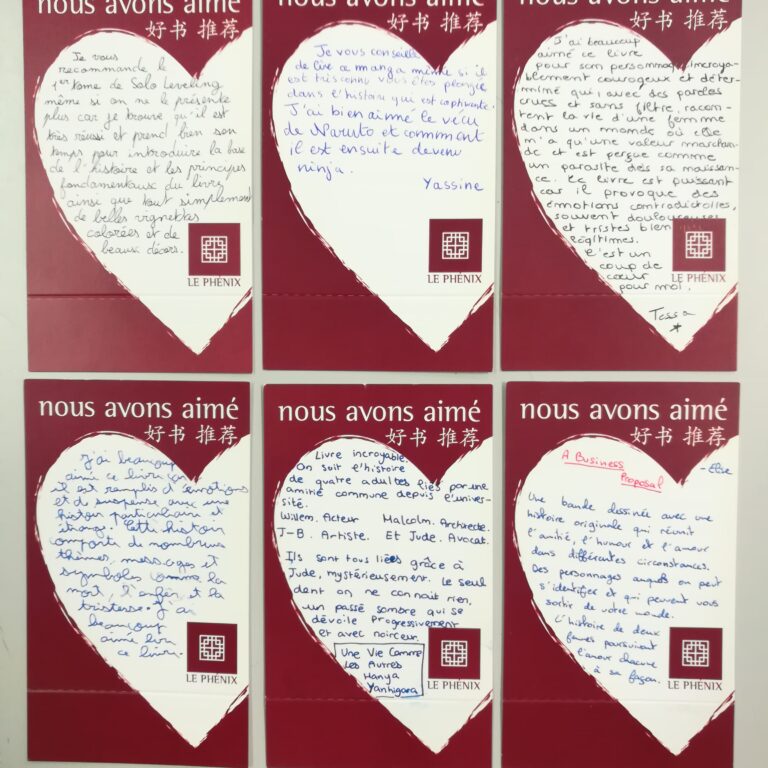 nous avons aimé
好书 推荐
Je vous
recommande le
1er tome de Solo Leveling
même si on ne le présente
plus car je trouve qu'il est
très réussi et prend bien son
temps pour introduire la base
de l'histoire et les principes
fondamentaux du livre
ainsi que tout simplement
de belles vignettes
colorées et de
beaux décors.
LE PHÉNIX
nous avons aimé
好书 推荐
Je vous conseille
de lire ce manga même si il
est très connu vous êtes plongé
dans l'histoire qui est captivante.
J'ai bien aimé le vécu
de Naruto et comment
il est ensuite devenu
ninja.
Yassine
LE PHÉNIX
nous avons aimé
好书 推荐
J'ai beaucoup
aimé ce livre
pour son personnage incroya-
blement courageux et déter-
miné qui, avec des paroles
crues et sans filtre, racon-
tent la vie d'une femme
dans un monde où elle
m'a qu'une valeur marchan-
de et est perçue comme
un parasite dès sa naissan-
ce. Ce livre est puissant
car il provoque des
émotions contradictoires,
souvent douloureuses
et tristes bien
légitimes.
C'est un
coup de
cœur
pour moi.
Tessa
LE PHÉNIX
nous avons aimé
好书 推荐
j'ai beaucoup
aimé ce livre car
il est remplis d'émotions
et de suspense avec une
histoire particulière et
étrange. Cette histoire
comporte de nombreux
thèmes, messages et
symboles comme la
mort, l'enfer, et la
tristesse. J'ai
beaucoup
aimé lire
ce livre.
LE PHÉNIX
nous avons aimé
好书 推荐
Livre incroyable.
On suit l'histoire
de quatre adultes liés par une
amitié commune depuis l'univer-
sité.
Willem. Acteur Malcolm. Architecte.
J-B. Artiste. Et Jude. Avocat.
Ils sont tous liés grâce à
Jude, mystérieusement. le seul
dont on ne connait rien,
un passé sombre qui se
dévoile progressivement
et avec noirceur.
Une Vie Comme
Les Autres
Hanya
Yanhigara
LE PHÉNIX
nous avons aimé
好书 推荐
A Business
Proposal
- Elise
Une bande dessinée avec une
histoire originale qui réunit
l'amitié, l'humour et l'amour
dans différentes circonstances.
Des personnages auquels on peut
s'identifier et qui peuvent vous
sortir de votre monde.
L'histoire de deux
femmes poursuivant
l'amour chacune
à sa façon.
LE PHÉNIX